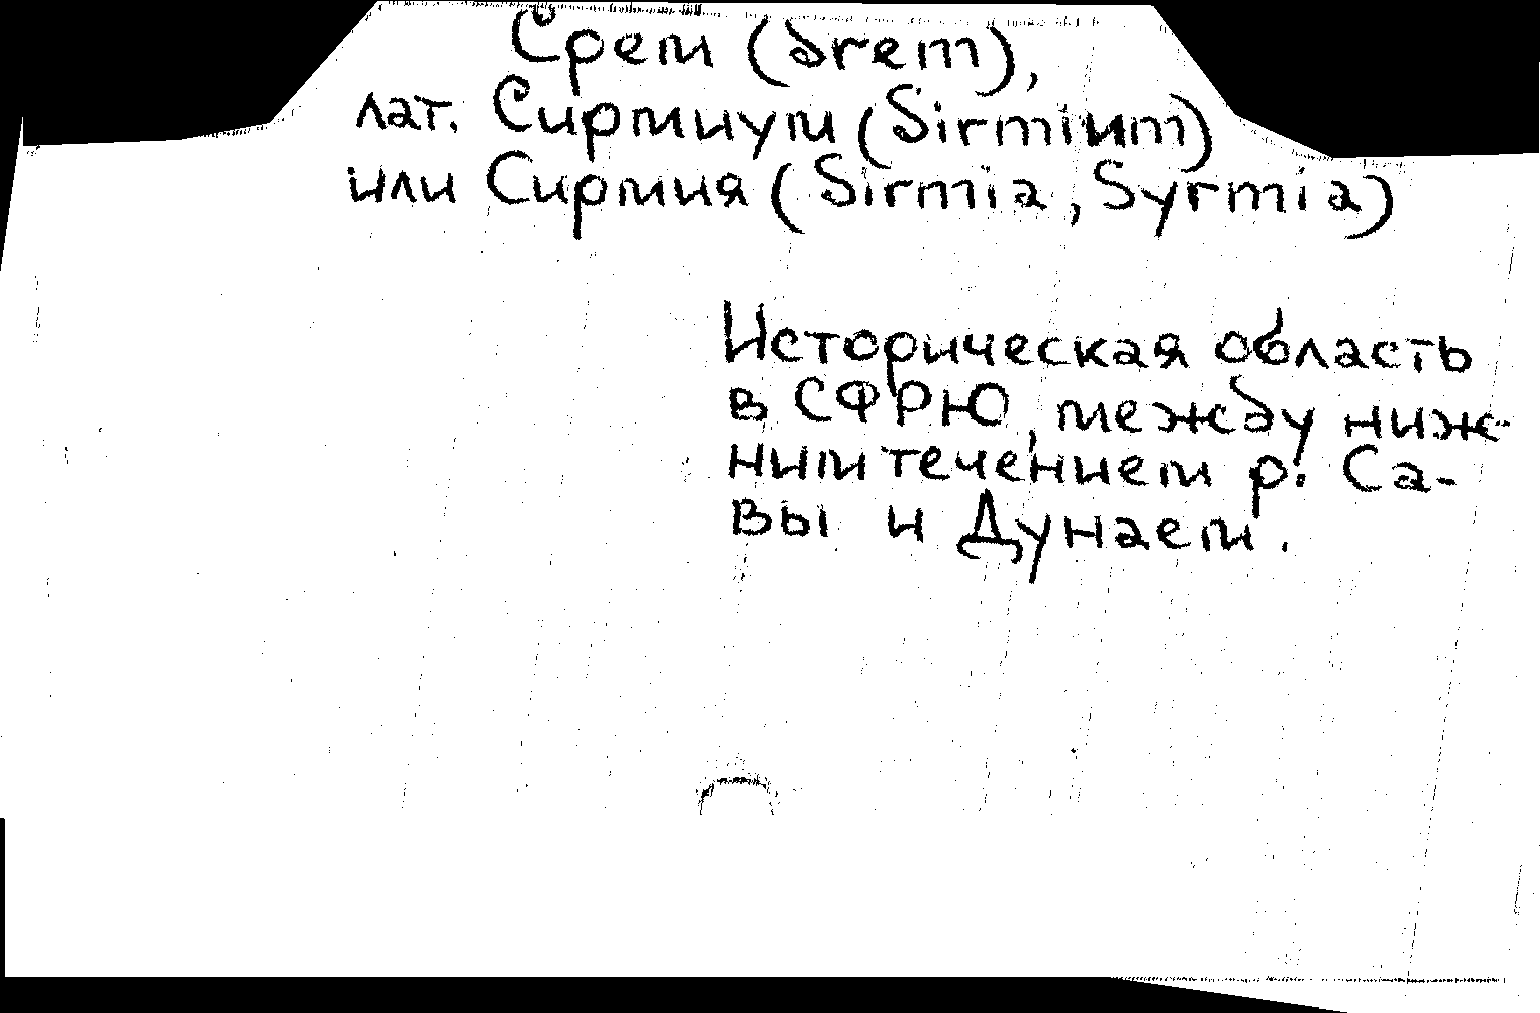 Срем (Srem),
лат. Сирмиум (Sirmium)
или Сирмия (Sirmia, Syrmia)
Историческая область
в СФРЮ, между ниж-
ним течением р. Са-
вы и Дунаем.